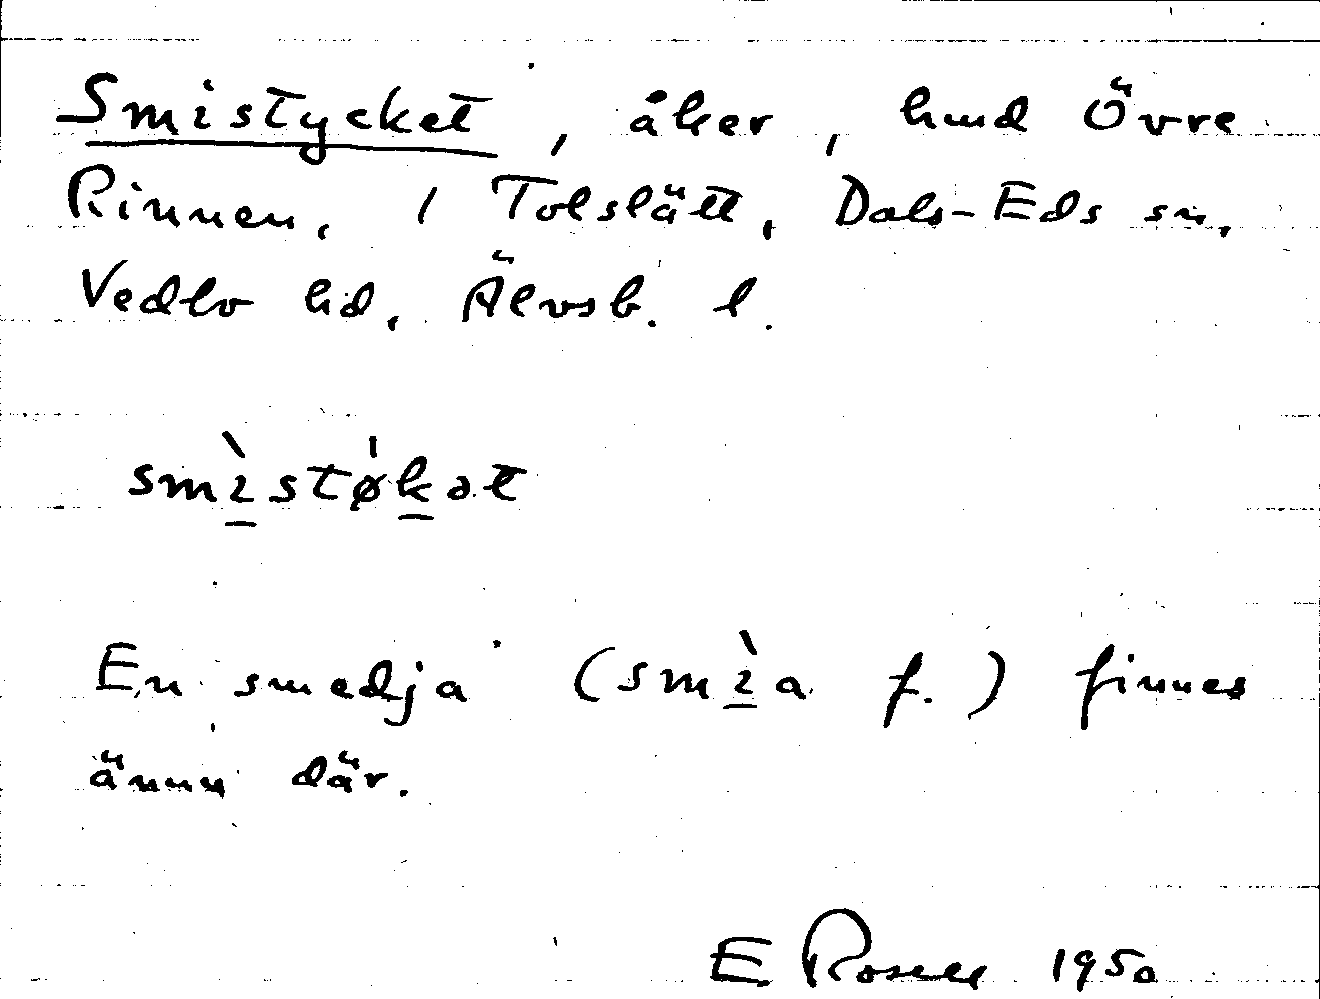 Smistycket, åker, hmd Övre
Rinnen, 1 Tolslätt, Dals-Eds sn,
Vedbo hd, Älvsb. l.
smìstø̍kət
En smedja (smìa f.) finnes
ännu där.
E Rosell 1950